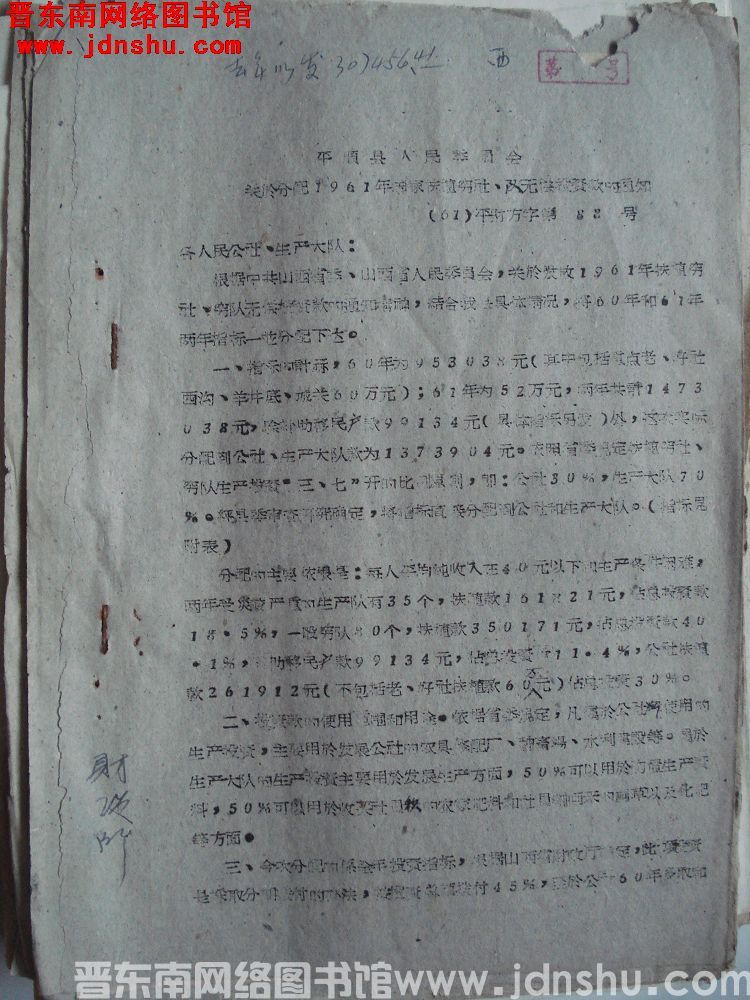 晋东南网络图书馆
www.jdnshu.com
去年已发307456.41 西
第 号
平顺县人民委员会
关於分配1961年国家扶植穷社、队无偿投资款的通知
(61)平财方字第 88 号
各人民公社、生产大队：
根据中共山西省委、山西省人民委员会，关於发放1961年扶植穷
社、穷队无偿投资款的通知精神，结合我县具体情况，将60年和61年
两年指标一并分配下去。
一、指标和计标，60年为953038元(其中包括重点老、好社
西沟、羊井底、城关60万元)；61年为52万元，两年共计1473
038元，除补助移民户款99134元(具体指标另发)外，这次实际
分配到公社、生产大队款为1373904元。依照省委规定扶植穷社、
穷队生产投资“三、七”开的比例原则，即：公社30%，生产大队70
%。经县委审查研究确定，将指标直接分配到公社和生产大队。(指标见
附表)
分配的主要依据是：每人平均纯收入在40元以下和生产条件困难，
两年受灾严重的生产队有35个，扶植款161821元，佔总投资款
18.5%，一般穷队80个，扶植款350171元，佔总投资款40
.1%，补助移民户款99134元，佔总投资11.4%，公社扶植
款261912元(不包括老、好社扶植款60万元)佔总投资30%。
二、投资款的使用范围和用途。依据省委规定，凡属於公社使用的
生产投资，主要用於发展公社的农具修配厂、种畜场、水利建设等。属於
生产大队的生产投资主要用於发展生产方面，50%可以用於购置生产资
料，50%可以用於收买社员积的农家肥料和社员饲养的畜草以及化肥
等方面。
三、今次分配的系全年投资指标，根据山西省财政厅规定，此项投资
是采取分期拨付的办法，按投资总额拨付45%，至於公社60年多取和
财政 部
晋东南网络图书馆www.jdnshu.com